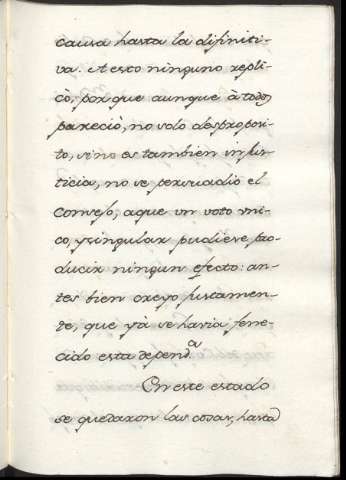 causa hasta la difiniti-
va. A esto ninguno repli-
cò, por que aunque à todos
pareciò, no solo desproposi-
to, sino es tambien injus-
ticia, no se persuadiò el
Consejo, aque un voto uni-
co, y singular pudiese pro-
ducir ningun efecto: an-
tes bien creyo justamen-
te, que yà se havia fene-
cido esta depend.ª
En este estado
se quedaron las cosas, hasta